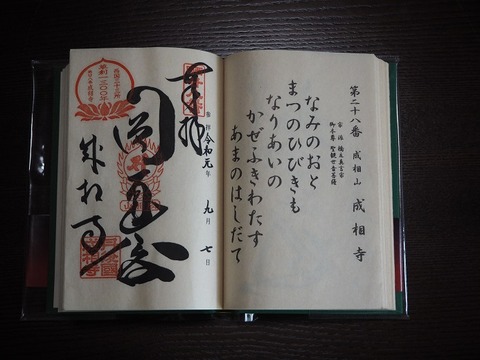 第二十八番 成相山 成相寺
宗派 橋立真言宗
御本尊 聖観世音菩薩
なみのおと
まつのひびきも
なりあいの
かぜふきわたす
あまのはしだて
令和元年 九月 七日
奉拝
成相寺
西国三十三所
草創一三〇〇年